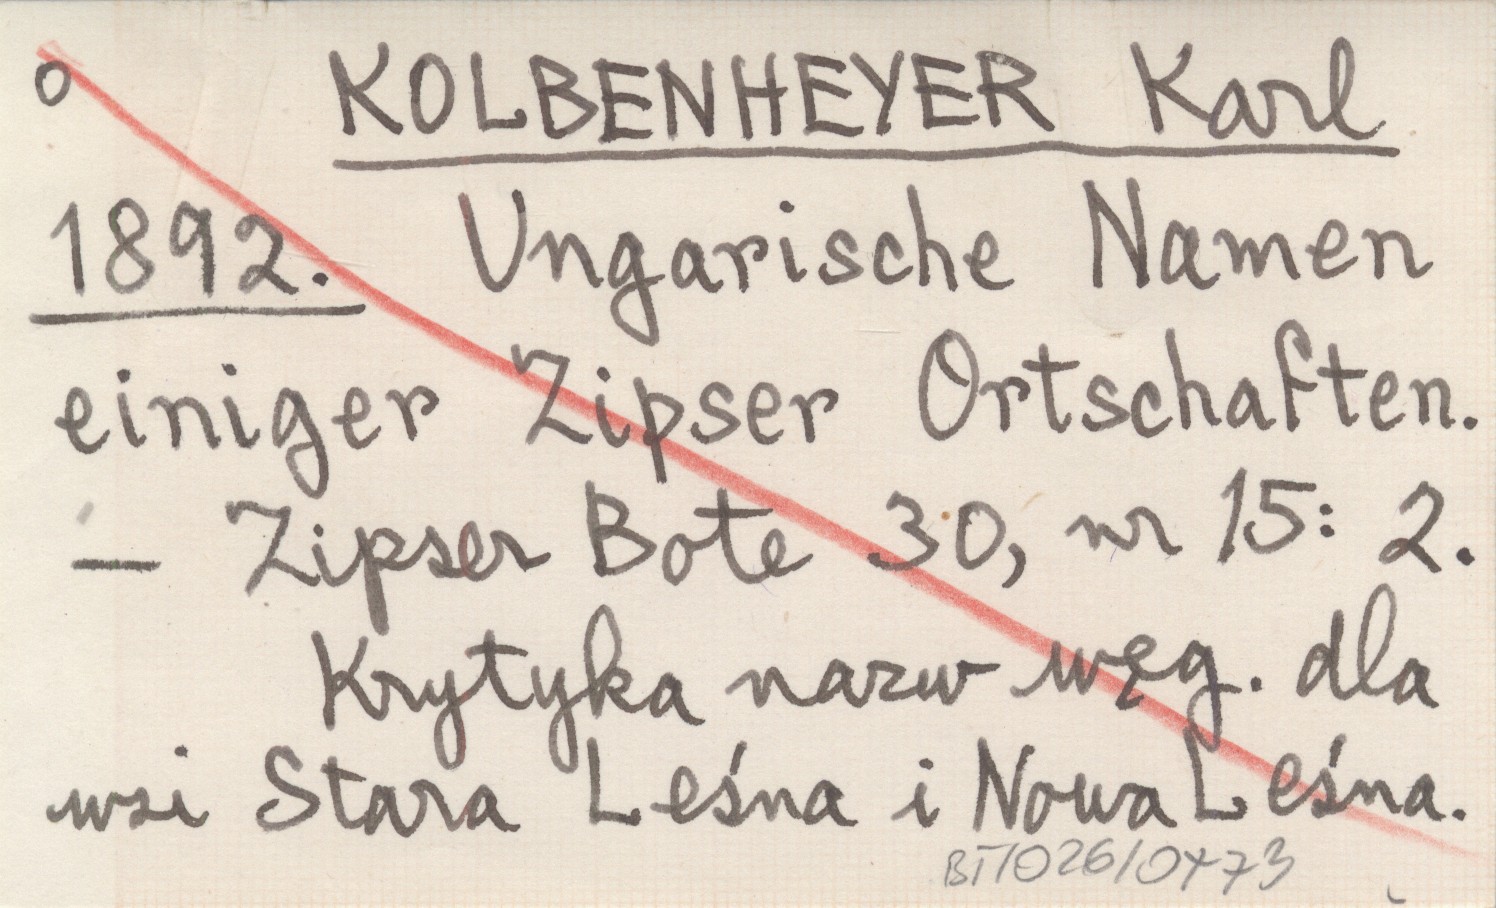 o KOLBENHEYER Karl
1892. Ungarische Namen
einiger Zipser Ortschaften.
— Zipser Bote 30, nr 15: 2.
Krytyka nazw węg. dla
wsi Stara Leśna i Nowa Leśna.
BT/026/0473